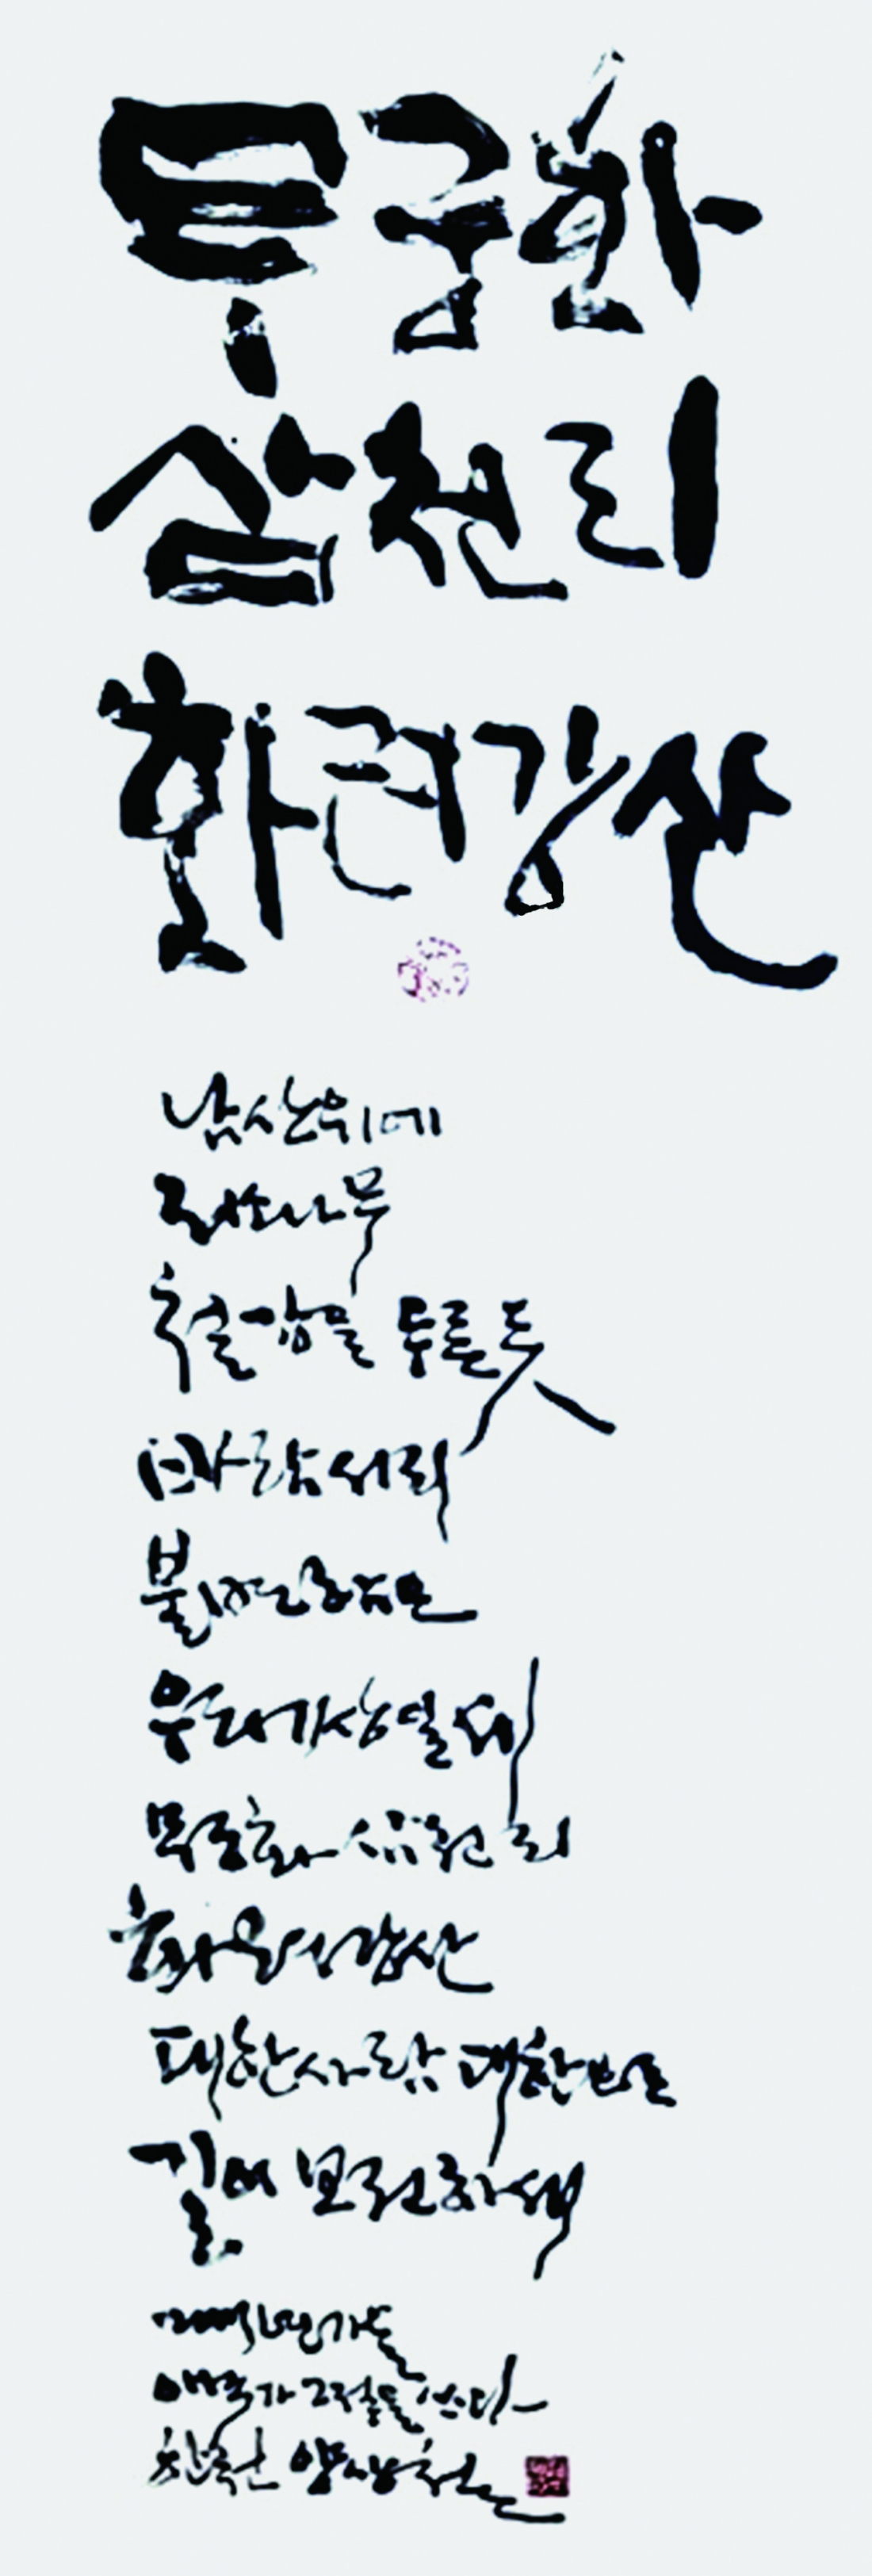 무궁화
삼천리
화려강산
남산위에
저소나무
철갑을 두른듯
바람서리
불변함은
우리기상일세
무궁화 삼천리
화려강산
대한사람 대한으로
길이 보전하세
애국가 2절을 쓰다